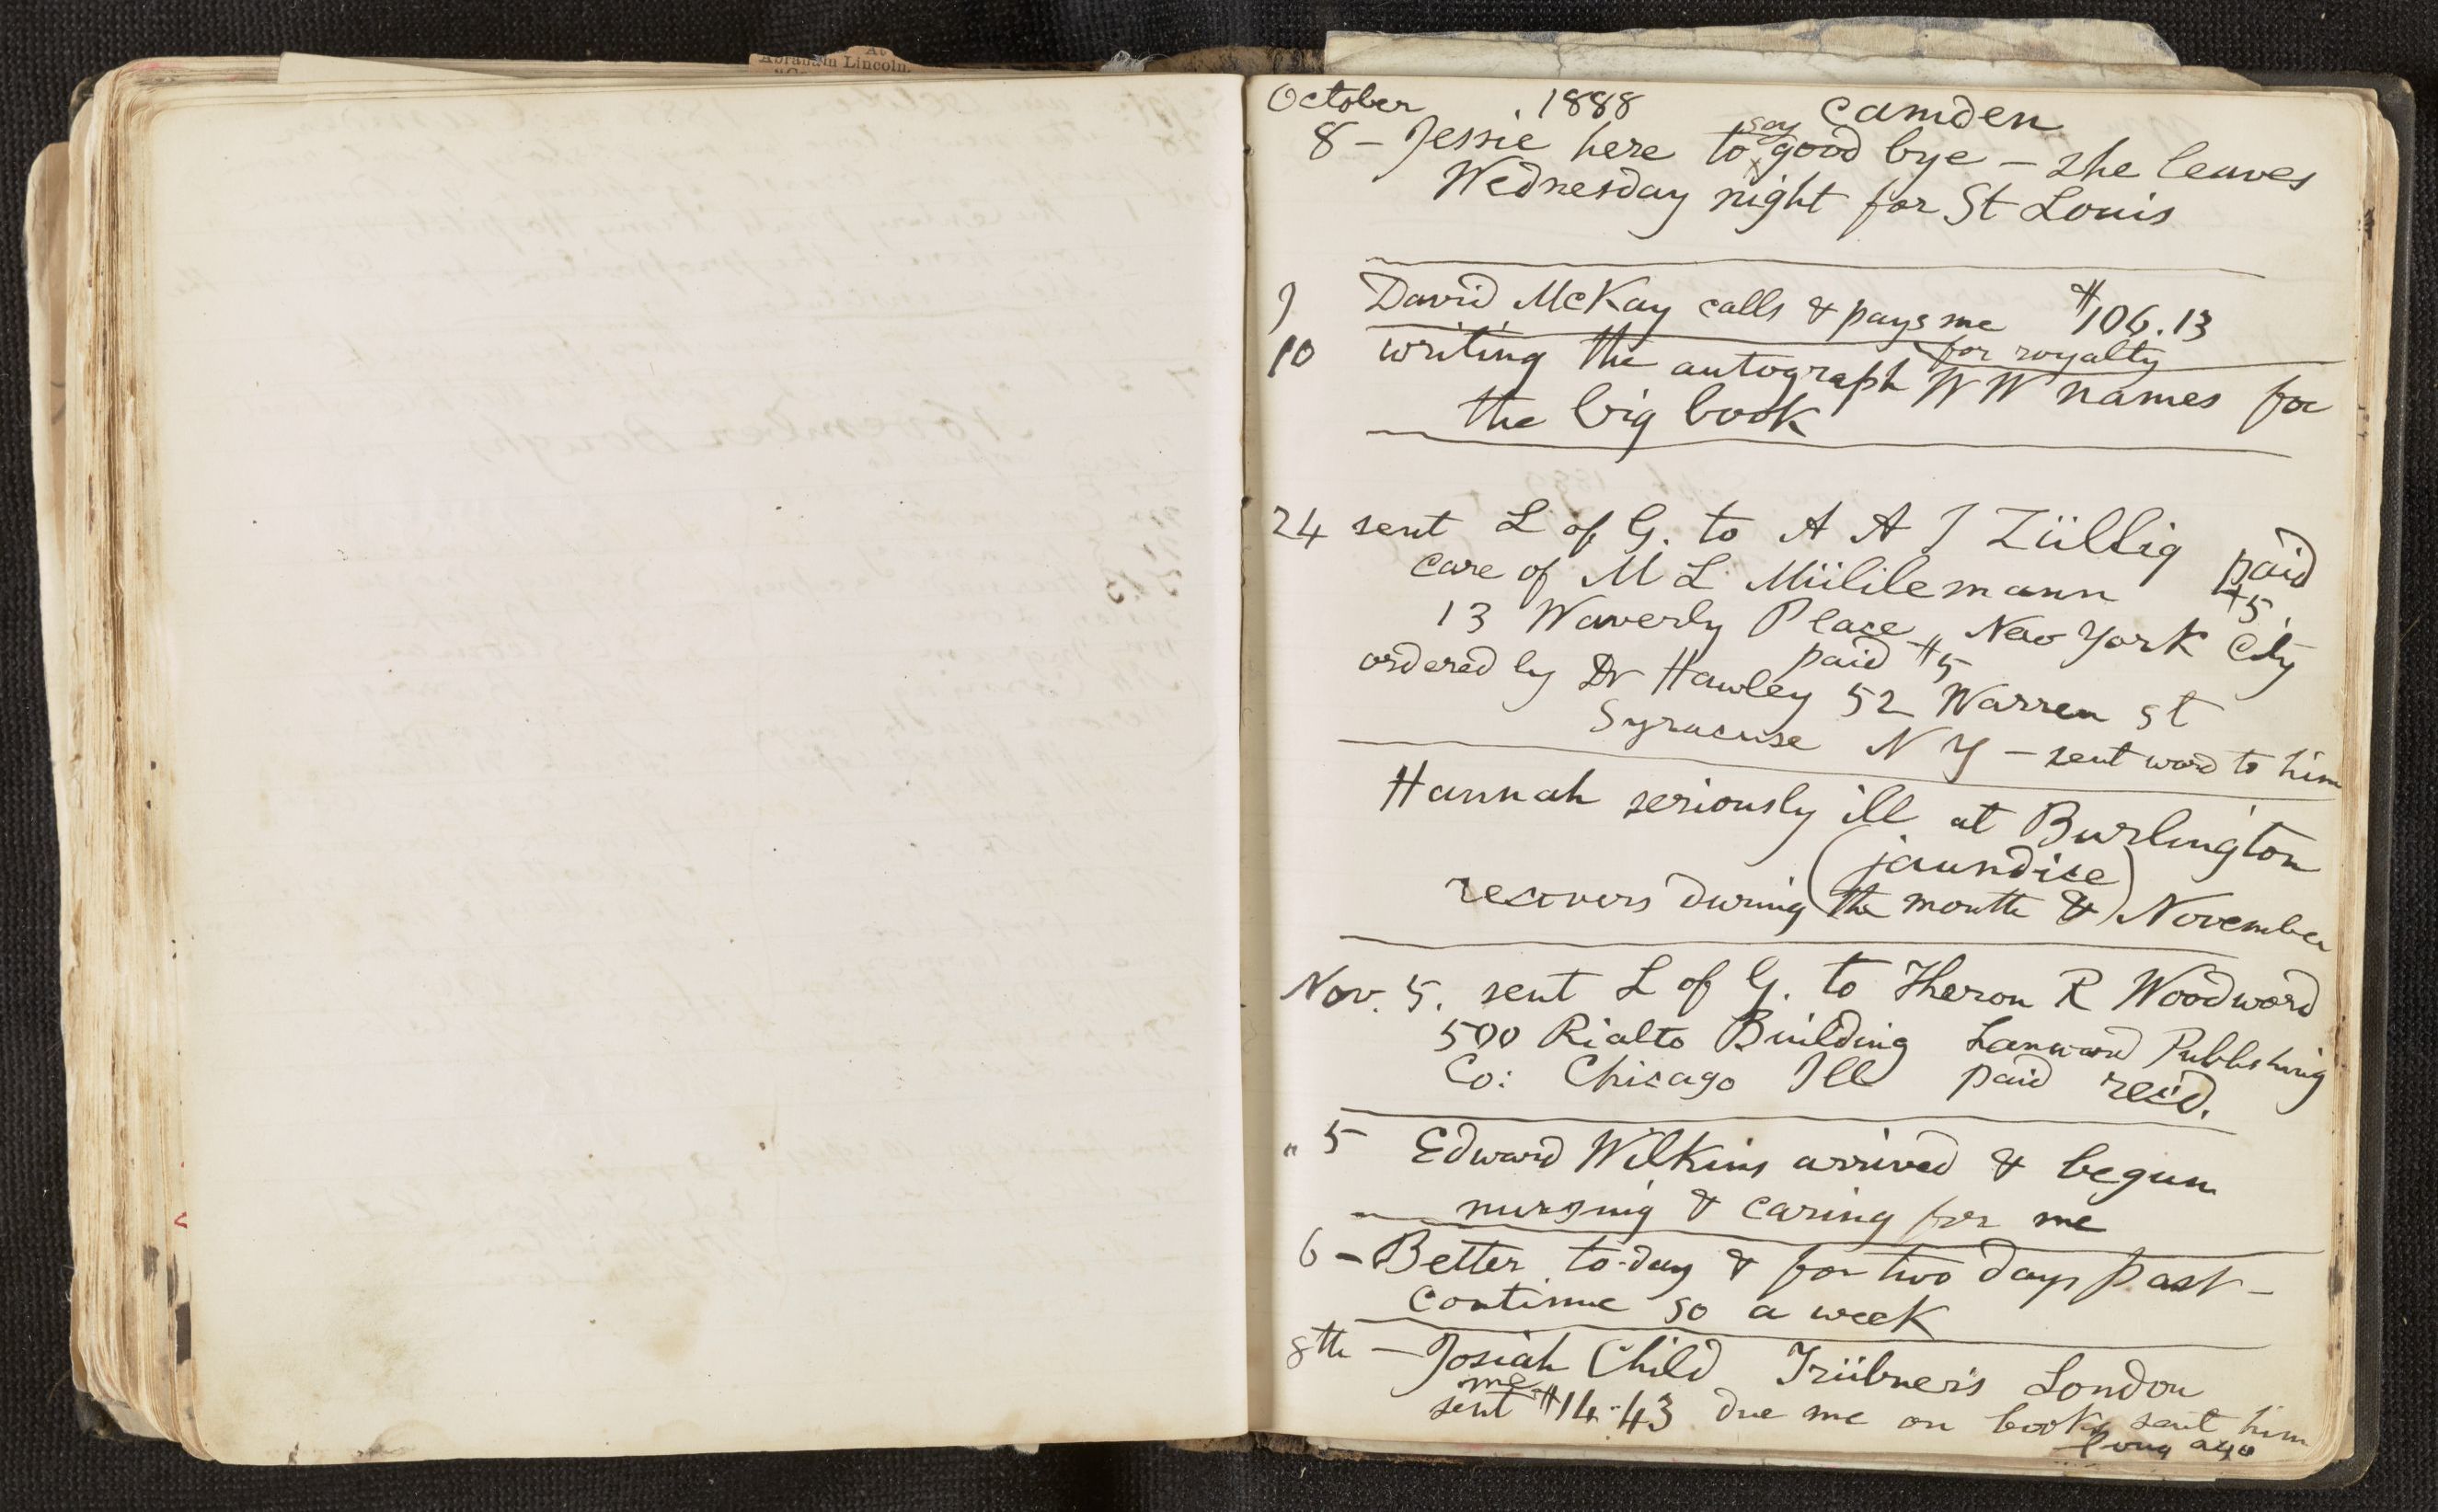 Abraham Lincoln.
October . 1888 Camden
say
8 – Jessie here to good bye – she leaves
Wednesday night for St Louis
9 David McKay calls & pays me $106.13
for royalty
10 writing the autograph W W names for
the big book
24 sent L of G. to A A J Züllig paid
care of M L Mülilemann $5.
13 Waverly Place, New York City
paid $5
ordered by Dr Hawley 52 Warren st
Syracuse N Y – sent word to him
Hannah seriously ill at Burlington
(jaundice)
recovers during the month & November
Nov. 5. sent L of G. to Theron R Woodward
500 Rialto Building Publishing
Co: Chicago Ill paid rec'd.
" 5 Edward Wilkins arrived & begun
nursing & caring for me
6 – Better to-day & for two days past –
continue so a week
8th – Josiah Child Trübner's London
me
sent $14.43 due me on books sent him
long ago